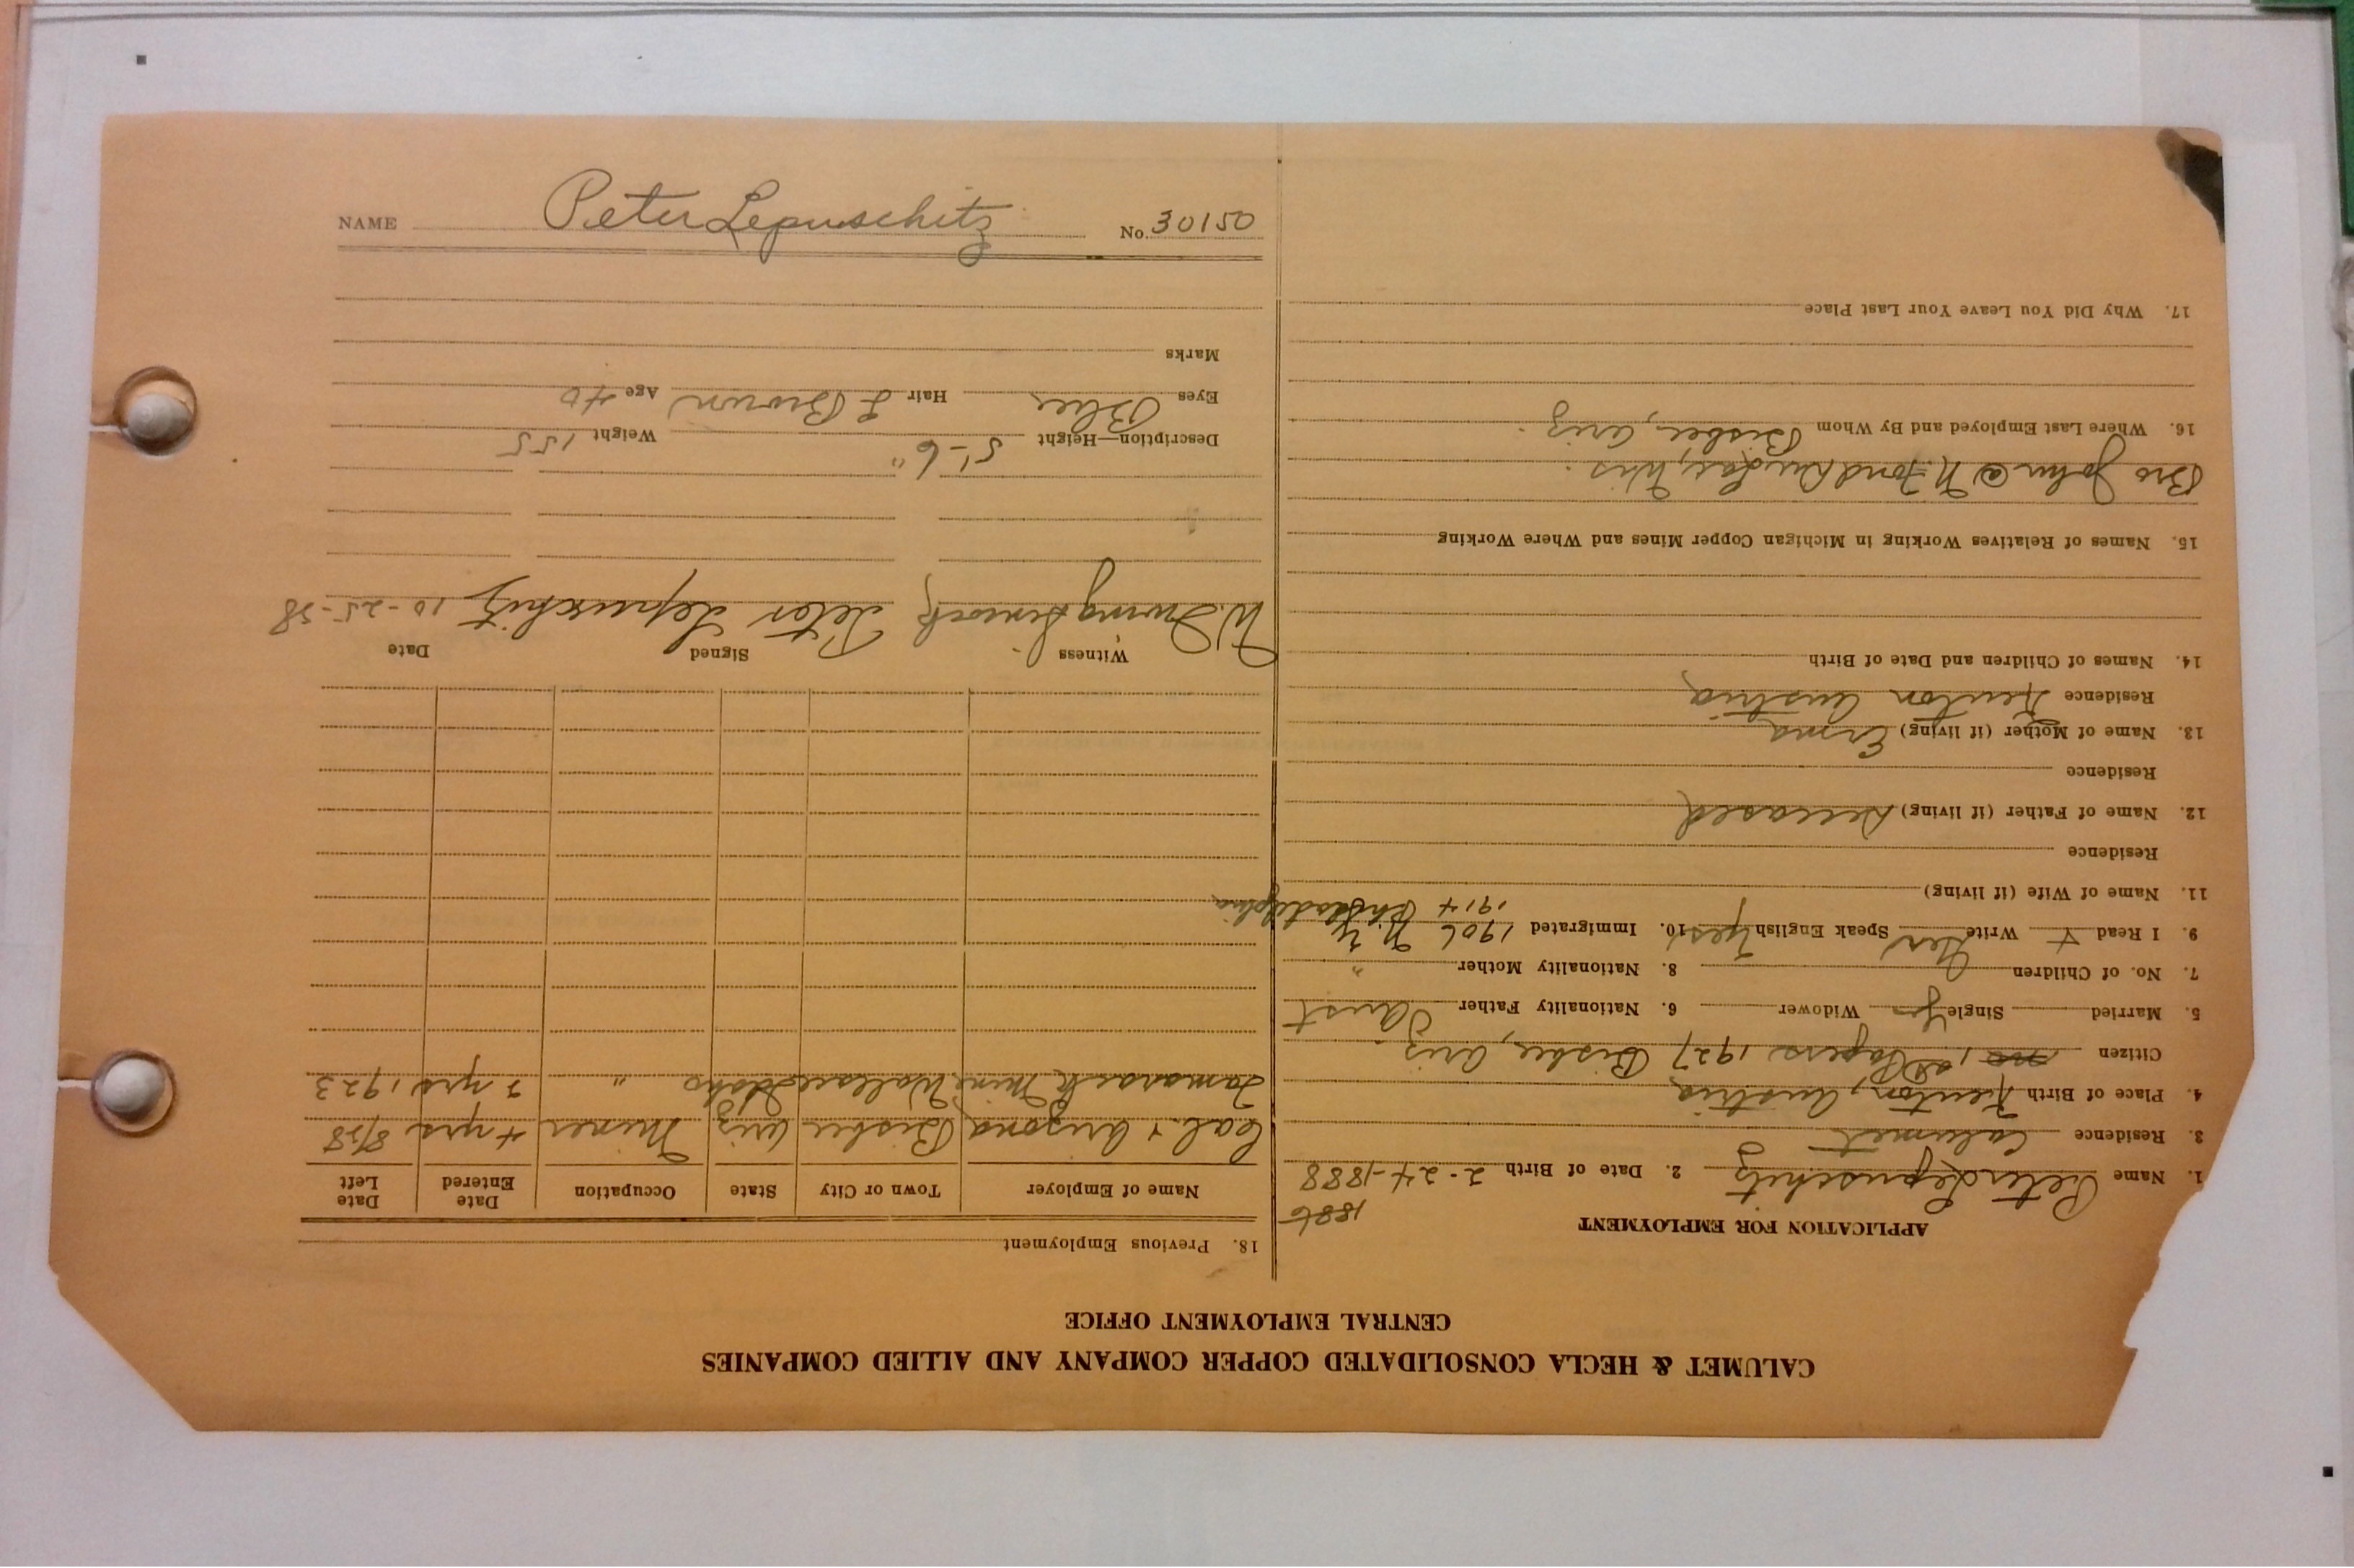 CALUMET & HECLA CONSOLIDATED COPPER COMPANY AND ALLIED COMPANIES
CENTRAL EMPLOYMENT OFFICE
APPLICATION FOR EMPLOYMENT
1886
1. Name Peter Lepuschitz 2. Date of Birth 2-24-1888
3. Residence Calumet
4. Place of Birth Austria
Citizen no, 1st Papers 1927 Bisbee, Ariz
5. Married Single Yes Widower 6. Nationality Father Aust
7. No. of Children 8. Nationality Mother "
9. I Read + Write Yes Speak English Yes 10. Immigrated 1906 N.Y.
1914 Philadelphia
11. Name of Wife (if living)
Residence
12. Name of Father (if living) Deceased
Residence
13. Name of Mother (if living) Erma
Residence Austria
14. Names of Children and Date of Birth
15. Names of Relatives Working in Michigan Copper Mines and Where Working
Bro John @ N. Fond du Lac, Wis.
16. Where Last Employed and By Whom Bisbee, Ariz.
17. Why Did You Leave Your Last Place
18. Previous Employment
Name of Employer Town or City State Occupation Date Entered Date Left
Cal. + Arizona Bisbee Ariz Miner 4 yrs 8/28
Tamarack Mine Wallace Idaho " 2 yrs 1923
Witness Signed Date
W. Peter Lepuschitz 10-25-28
Description—Height 5'-6" Weight 155
Eyes Blue Hair L Brown Age 40
Marks
NAME Peter Lepuschitz No. 30150